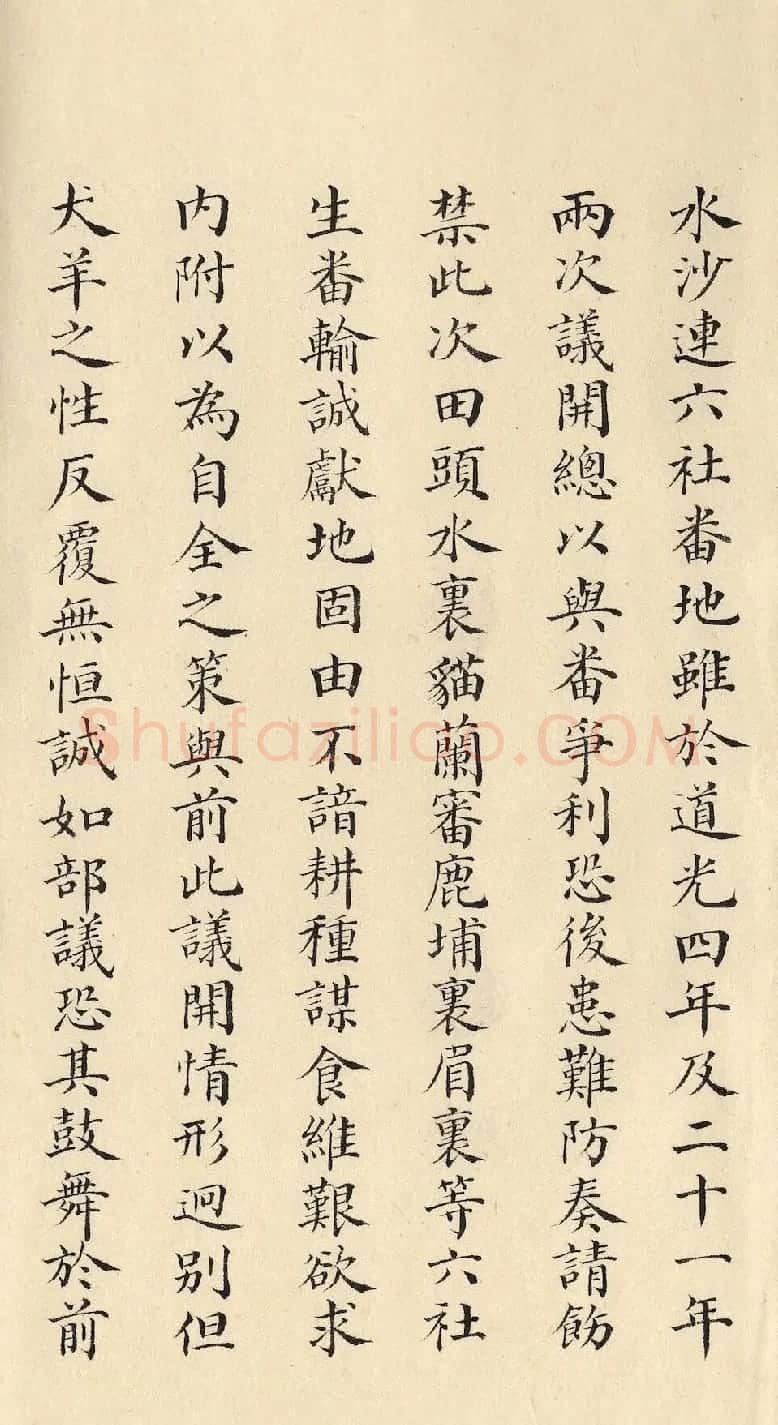 水沙連六社番地雖於道光四年及二十一年
兩次議開總以與番爭利恐後患難防奏請飭
禁此次田頭水裏貓蘭審鹿埔裏眉裏等六社
生番輸誠獻地固由不諳耕種謀食維艱欲求
内附以為自全之策與前此議開情形迥别但
犬羊之性反覆無恒誠如部議恐其鼓舞於前
Shufaziliao.COM